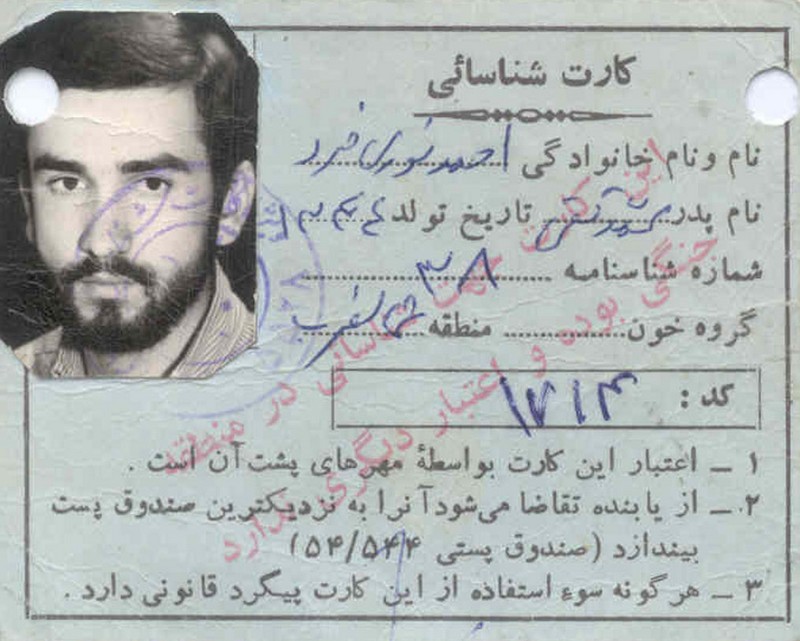 کارت شناسائی
نام ونام خانوادگی احمد نوری فرد
نام پدر تاریخ تولد
شماره شناسنامه ۳۸
گروه خون منطقه
کد : ۱۷۱۳
۱ ــ اعتبار این کارت بواسطهٔ مهرهای پشت آن است .
۲ ــ از یابنده تقاضا می‌شود آنرا به نزدیکترین صندوق پست
بیندازد (صندوق پستی ۵۴/۵۴۴)
۳ ــ هرگونه سوء استفاده از این کارت پیگرد قانونی دارد .
این کارت جهت شناسائی در منطقه
جنگی بوده و اعتبار دیگری ندارد